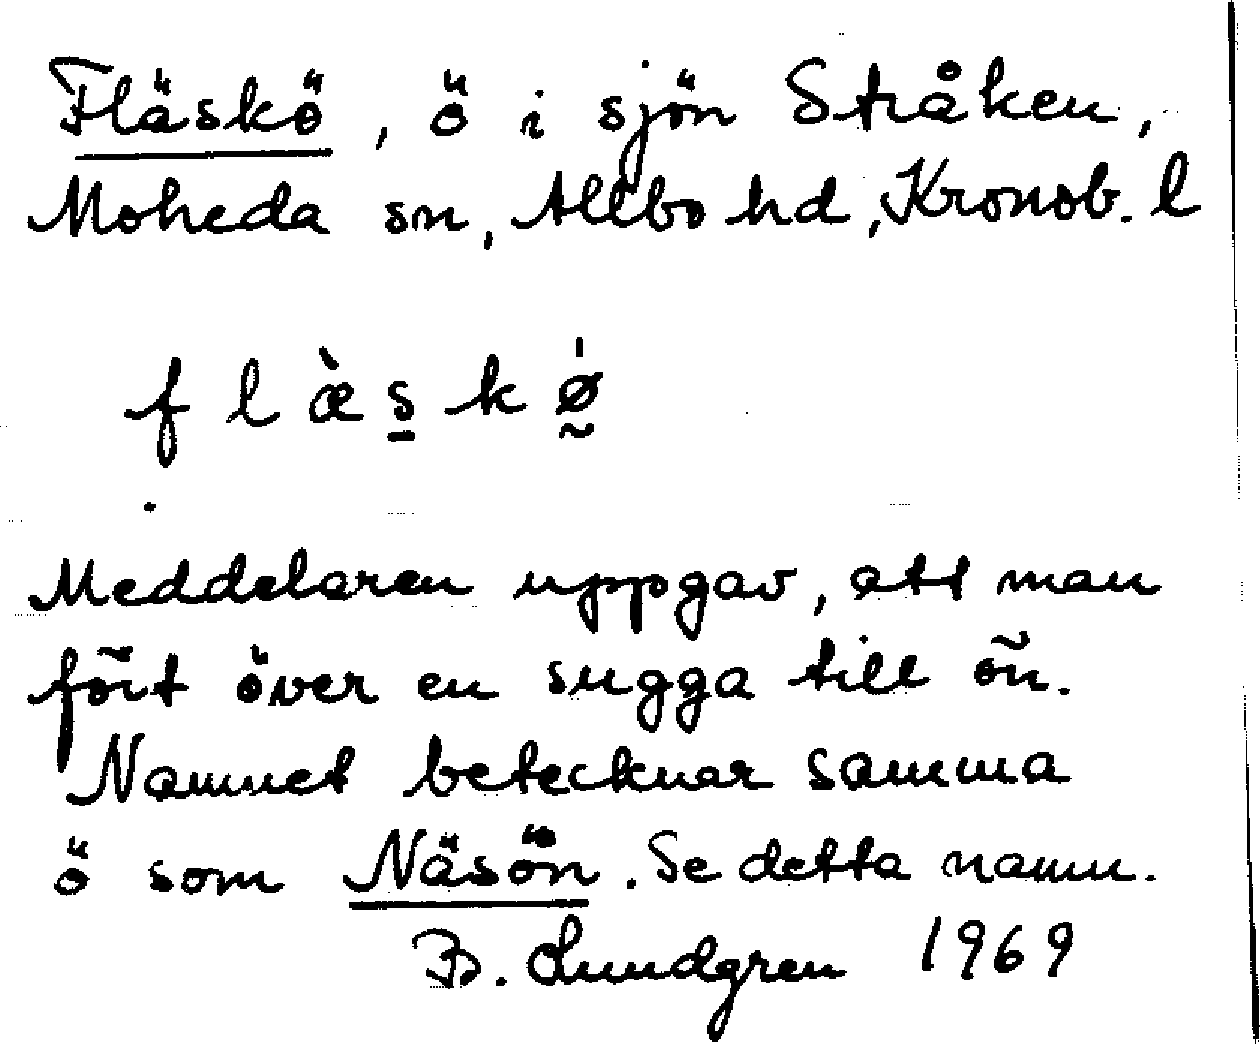 Fläskö, ö i sjön Stråken,
Moheda sn, Allbo hd, Kronob. l
f l æ̀ s̲ k ø̰̍
Meddelaren uppgav, att man
fört över en sugga till ön.
Namnet betecknar samma
ö som Näsön. Se detta namn.
B. Lundgren 1969